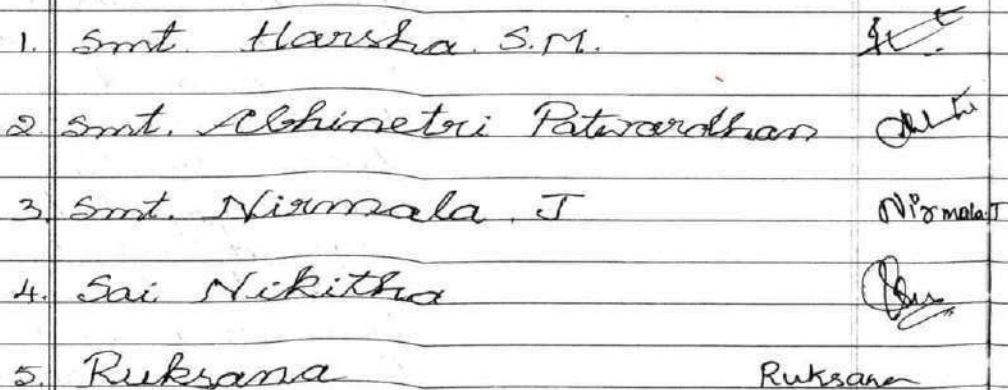 1. Smt. Harsha. S.M.
2. Smt. Abhinetri Patwardhan
3. Smt. Nirmala. J Nirmala.J
4. Sai Nikitha
5. Ruksana Ruksana